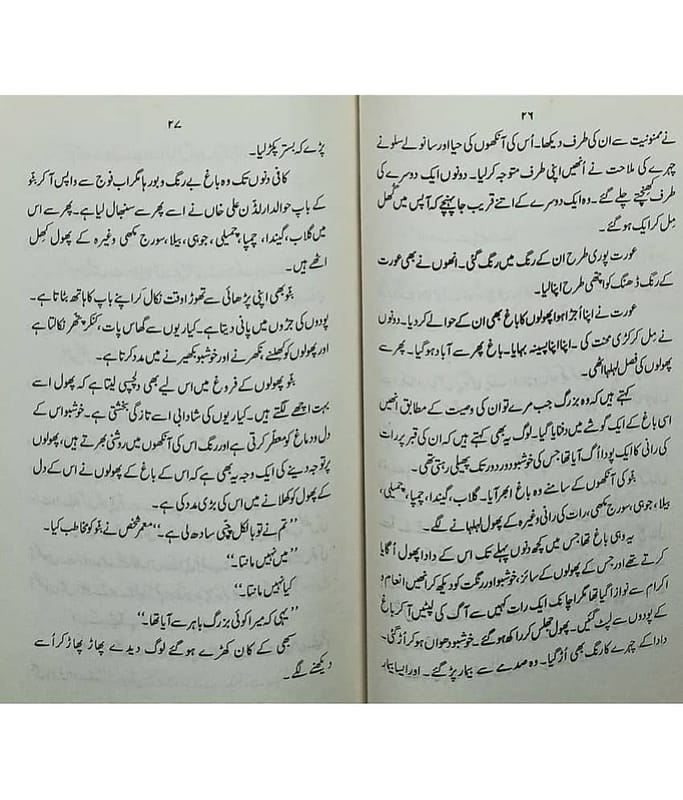 ۲۶
نے ممنونیت سے ان کی طرف دیکھا۔ اُس کی آنکھوں کی حیا اور سانولے سلونے
چہرے کی ملاحت نے انھیں اپنی طرف متوجہ کر لیا۔ دونوں ایک دوسرے کی
طرف کھنچتے چلے گئے۔ وہ ایک دوسرے کے اتنے قریب جا پہنچے کہ آپس میں گھُل
مِل کر ایک ہو گئے۔
عورت پوری طرح ان کے رنگ میں رنگ گئی۔ انھوں نے بھی عورت
کے رنگ ڈھنگ کو اچھی طرح اپنا لیا۔
عورت نے اپنا اُجڑا ہوا پھولوں کا باغ بھی ان کے حوالے کر دیا۔ دونوں
نے مِل کر کڑی محنت کی۔ اپنا اپنا پسینہ بہایا۔ باغ پھر سے آباد ہو گیا۔ پھر سے
پھولوں کی فصل لہلہا اٹھی۔
کہتے ہیں کہ وہ بزرگ جب مرے تو ان کی وصیت کے مطابق انھیں
اسی باغ کے ایک گوشے میں دفنایا گیا۔ لوگ یہ بھی کہتے ہیں کہ ان کی قبر پر رات
کی رانی کا ایک پودا اُگ آیا تھا جس کی خوشبو دور دور تک پھیلی رہتی تھی۔
بنّو کی آنکھوں کے سامنے وہ باغ ابھر آیا۔ گلاب، گیندا، چمپا، چمیلی،
بیلا، جوہی، سورج مکھی، رات کی رانی وغیرہ کے پھول لہلہانے لگے۔
یہ وہی باغ تھا جس میں کچھ دنوں پہلے تک اس کے دادا پھول اُگایا
کرتے تھے اور جس کے پھولوں کے سائز، خوشبو اور رنگت کو دیکھ کر انھیں انعام و
اکرام سے نوازا گیا تھا مگر اچانک ایک رات کہیں سے آگ کی لپٹیں آ کر باغ
کے پودوں سے لپٹ گئیں۔ پھول جھلس کر راکھ ہو گئے۔ خوشبو دھواں ہو کر اُڑ گئی۔
دادا کے چہرے کا رنگ بھی اُڑ گیا۔ وہ صدمے سے بیمار پڑ گئے۔ اور ایسا بیمار
۲۷
پڑے کہ بستر پکڑ لیا۔
کافی دنوں تک وہ باغ بے رنگ و بو رہا مگر اب فوج سے واپس آ کر بنّو
کے باپ حوالدار لڈن علی خاں نے اسے پھر سے سنبھال لیا ہے۔ پھر سے اس
میں گلاب، گیندا، چمپا، چمیلی، جوہی، بیلا، سورج مکھی وغیرہ کے پھول کھل
اٹھے ہیں۔
بنّو بھی اپنی پڑھائی سے تھوڑا وقت نکال کر اپنے باپ کا ہاتھ بٹاتا ہے۔
پودوں کی جڑوں میں پانی دیتا ہے۔ کیاریوں سے گھاس پات، کنکر پتھر نکالتا ہے
اور پھولوں کو کھلنے، نکھرنے اور خوشبو بکھیرنے میں مدد کرتا ہے۔
بنّو پھولوں کے فروغ میں اس لیے بھی دلچسپی لیتا ہے کہ پھول اسے
بہت اچھے لگتے ہیں۔ کیاریوں کی شادابی اسے تازگی بخشتی ہے۔ خوشبو اس کے
دل و دماغ کو معطّر کرتی ہے اور رنگ اس کی آنکھوں میں روشنی بھرتے ہیں، پھولوں
پر توجہ دینے کی ایک وجہ یہ بھی ہے کہ اس کے باغ کے پھولوں نے اس کے دل
کے پھول کو کھلانے میں اس کی بڑی مدد کی ہے۔
”تم نے تو بالکل چپّی سادھ لی ہے۔“ معمر شخص نے بنّو کو مخاطب کیا۔
”میں نہیں مانتا۔“
کیا نہیں مانتا۔“
”یہی کہ میرا کوئی بزرگ باہر سے آیا تھا۔“
سبھی کے کان کھڑے ہو گئے لوگ دیدے پھاڑ پھاڑ کر اُسے
دیکھنے لگے۔